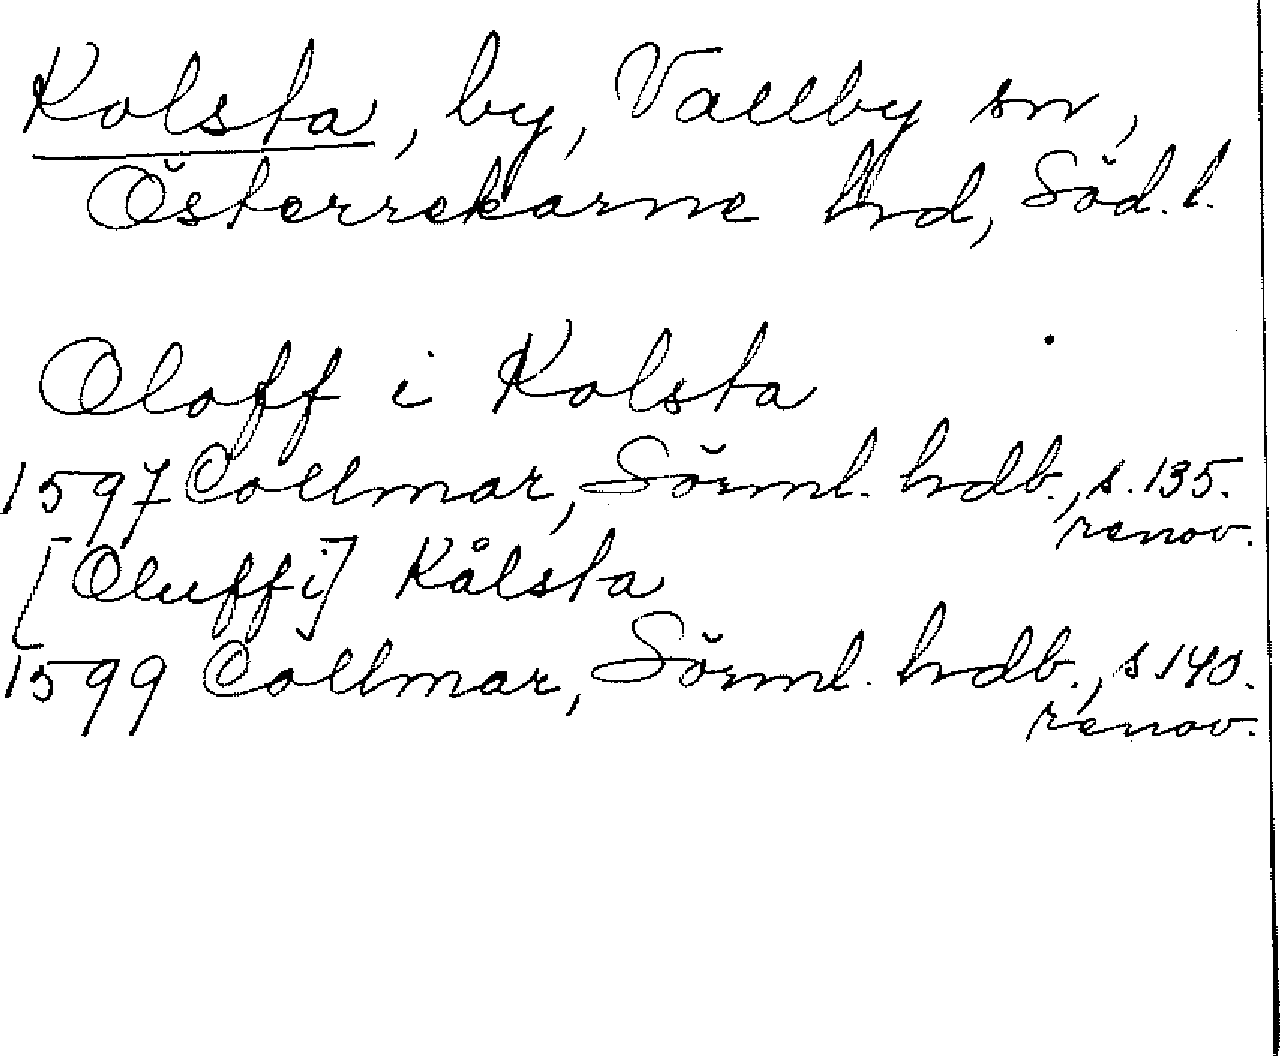 Kolsta, by, Vallby sn,
Österrekarne hrd, Söd. l.
Oloff i Kolsta
1597 Collmar, Sörml. hdb., s. 135.
renov.
[Oluff i] Kålsta
1599 Collmar, Sörml. hdb., s. 140.
renov.